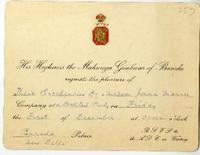 257
His Highness the Maharaja Gaekwar of Baroda
requests the pleasure of
Their Excellencies Dr & Madam
Company at a Cocktail Party on Friday
the First of December at o'clock
Baroda Palace R.S.V.P. to
New Delhi the A.D.C. in Waiting